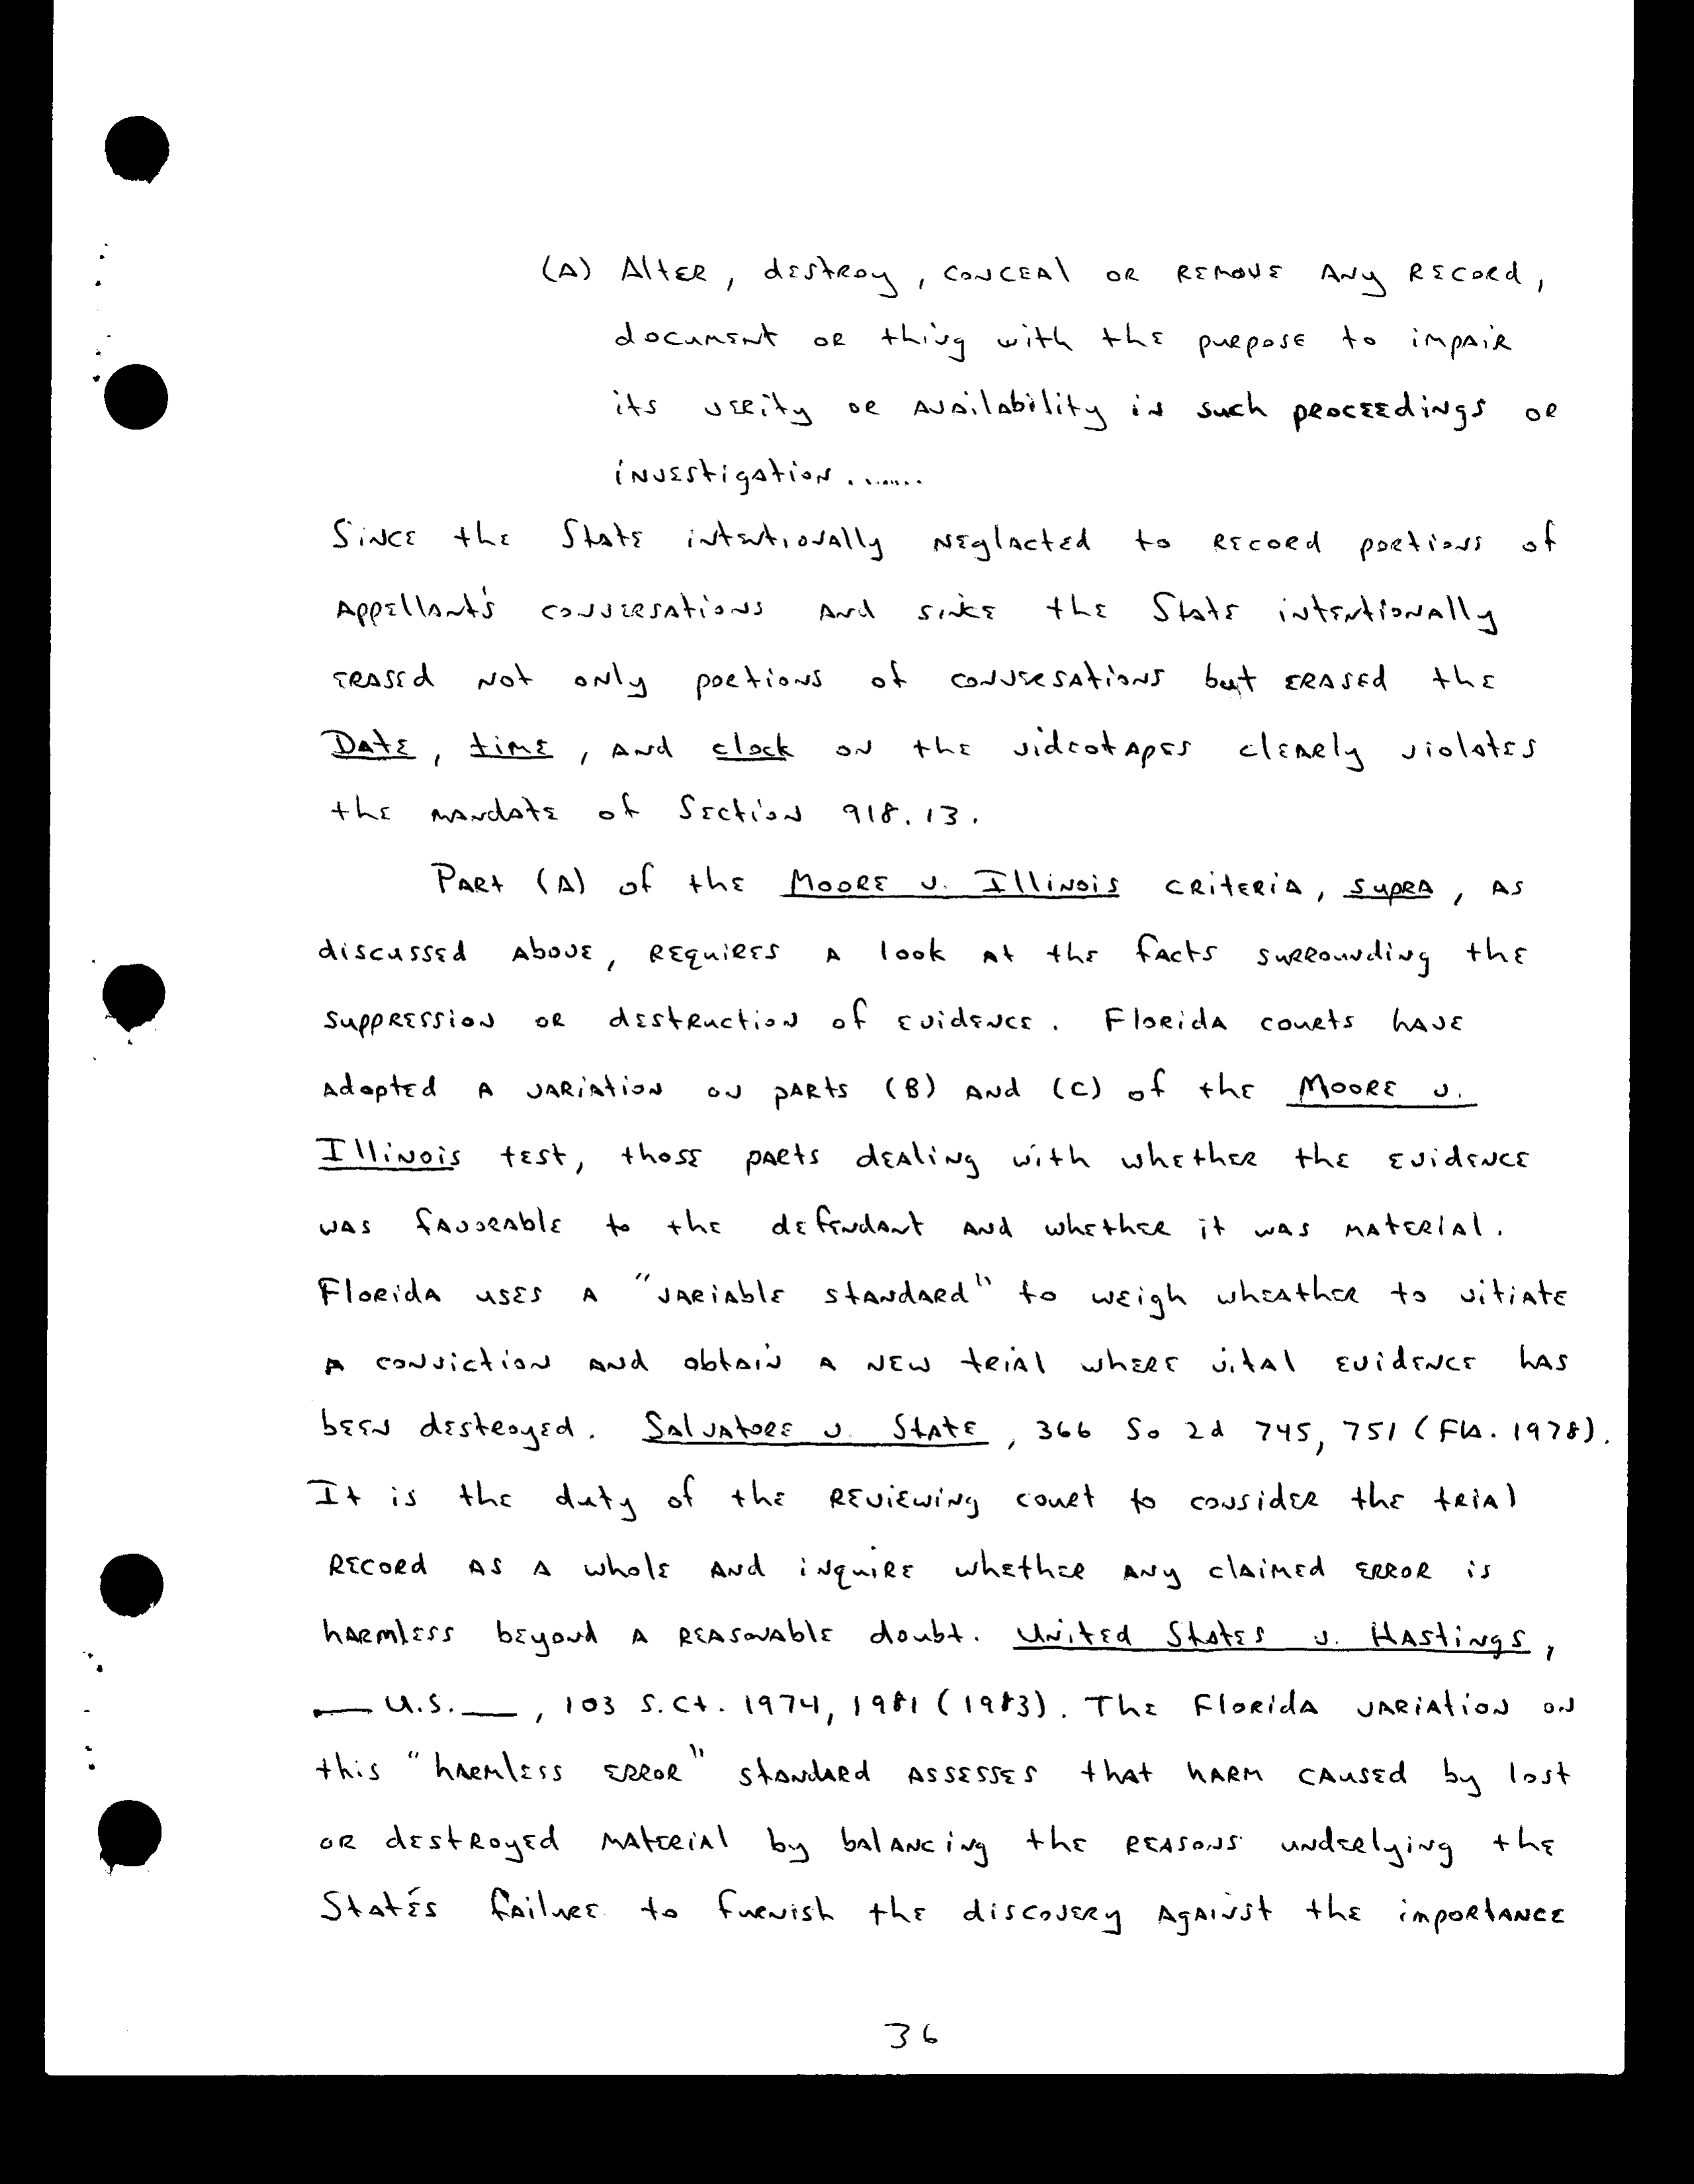 (A) Alter, destroy, conceal or remove any record,
document or thing with the purpose to impair
its verity or availability in such proceedings or
investigation.......
Since the State intentionally neglacted to record portions of
Appellant's conversations and since the State intentionally
erased not only portions of conversations but erased the
Date, time, and clock on the videotapes clearly violates
the mandate of Section 918.13.
Part (A) of the Moore v. Illinois criteria, supra, as
discussed above, requires a look at the facts surrounding the
suppression or destruction of evidence. Florida courts have
adopted a variation on parts (B) and (C) of the Moore v.
Illinois test, those parts dealing with whether the evidence
was favorable to the defendant and whether it was material.
Florida uses a "variable standard" to weigh wheather to vitiate
a conviction and obtain a new trial where vital evidence has
been destroyed. Salvatore v. State, 366 So 2d 745, 751 (Fla. 1978).
It is the duty of the reviewing court to consider the trial
record as a whole and inquire whether any claimed error is
harmless beyond a reasonable doubt. United States v. Hastings,
__ U.S. __, 103 S.Ct. 1974, 1981 (1983). The Florida variation on
this "harmless error" standard assesses that harm caused by lost
or destroyed material by balancing the reasons underlying the
State's failure to furnish the discovery against the importance
36